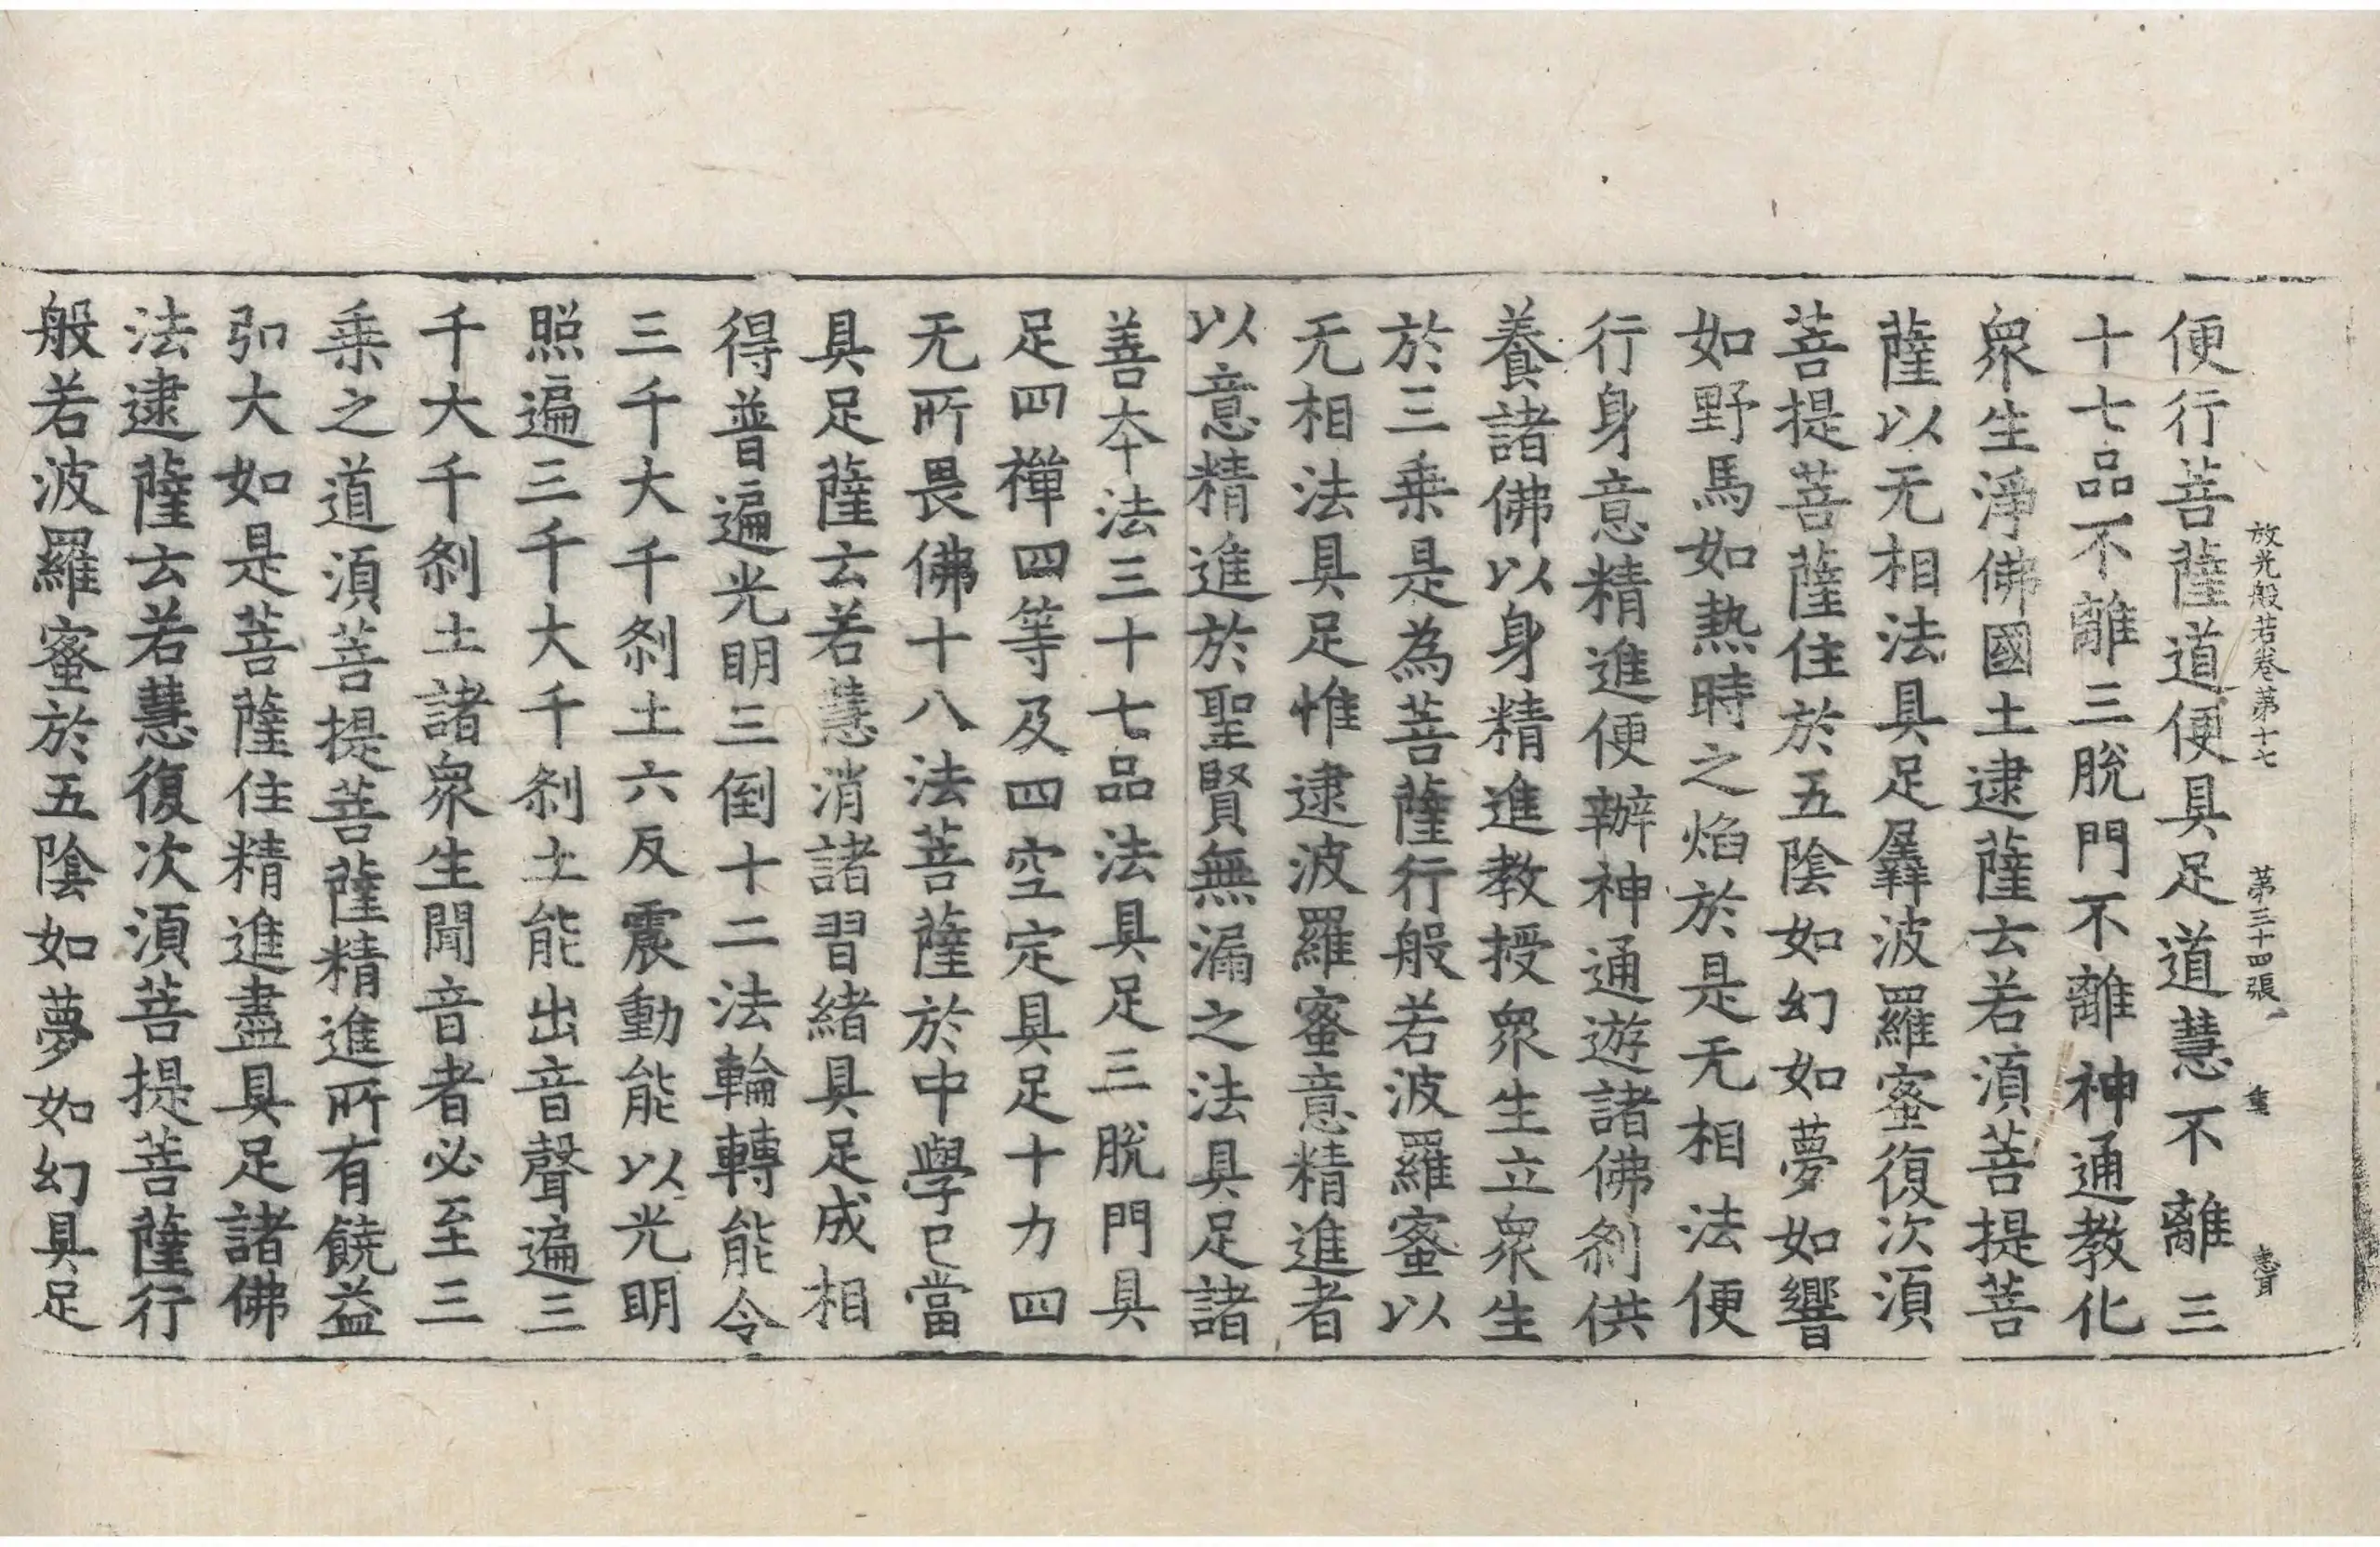 放光般若卷第十七　第三十四張　重
便行菩薩道便具足道慧不離三
十七品不離三脫門不離神通教化
衆生淨佛國土逮薩云若須菩提菩
薩以无相法具足羼波羅蜜復次須
菩提菩薩住於五陰如幻如夢如響
如野馬如熱時之焰於是无相法便
行身意精進便辦神通遊諸佛剎供
養諸佛以身精進教授衆生立衆生
於三乗是為菩薩行般若波羅蜜以
无相法具足惟逮波羅蜜意精進者
以意精進於聖賢無漏之法具足諸
善夲法三十七品法具足三脫門具
足四禪四等及四空定具足十力四
无所畏佛十八法菩薩於中學已當
具足薩云若慧消諸習緒具足成相
得普遍光明三倒十二法輪轉能令
三千大千剎土六反震動能以光明
照遍三千大千剎土能出音聲遍三
千大千剎土諸衆生聞音者必至三
乗之道須菩提菩薩精進所有饒益
弘大如是菩薩住精進盡具足諸佛
法逮薩云若慧復次須菩提菩薩行
般若波羅蜜於五陰如夢如幻具足